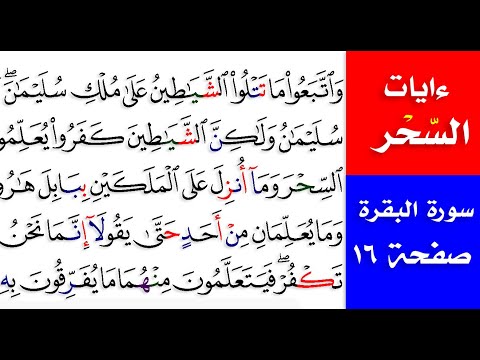 وَٱتَّبَعُوا۟ مَا تَتْلُوا۟ ٱلشَّيَـٰطِينُ عَلَىٰ مُلْكِ سُلَيْمَـٰنَ ۖ
سُلَيْمَـٰنُ وَلَـٰكِنَّ ٱلشَّيَـٰطِينَ كَفَرُوا۟ يُعَلِّمُو
ٱلسِّحْرَ وَمَآ أُنزِلَ عَلَى ٱلْمَلَكَيْنِ بِبَابِلَ هَـٰرُ
وَمَا يُعَلِّمَانِ مِنْ أَحَدٍ حَتَّىٰ يَقُولَآ إِنَّمَا نَحْنُ
تَكْفُرْ ۖ فَيَتَعَلَّمُونَ مِنْهُمَا مَا يُفَرِّقُونَ بِهِ
ءايات
السّحْر
سورة البقرة
صفحة ١٦